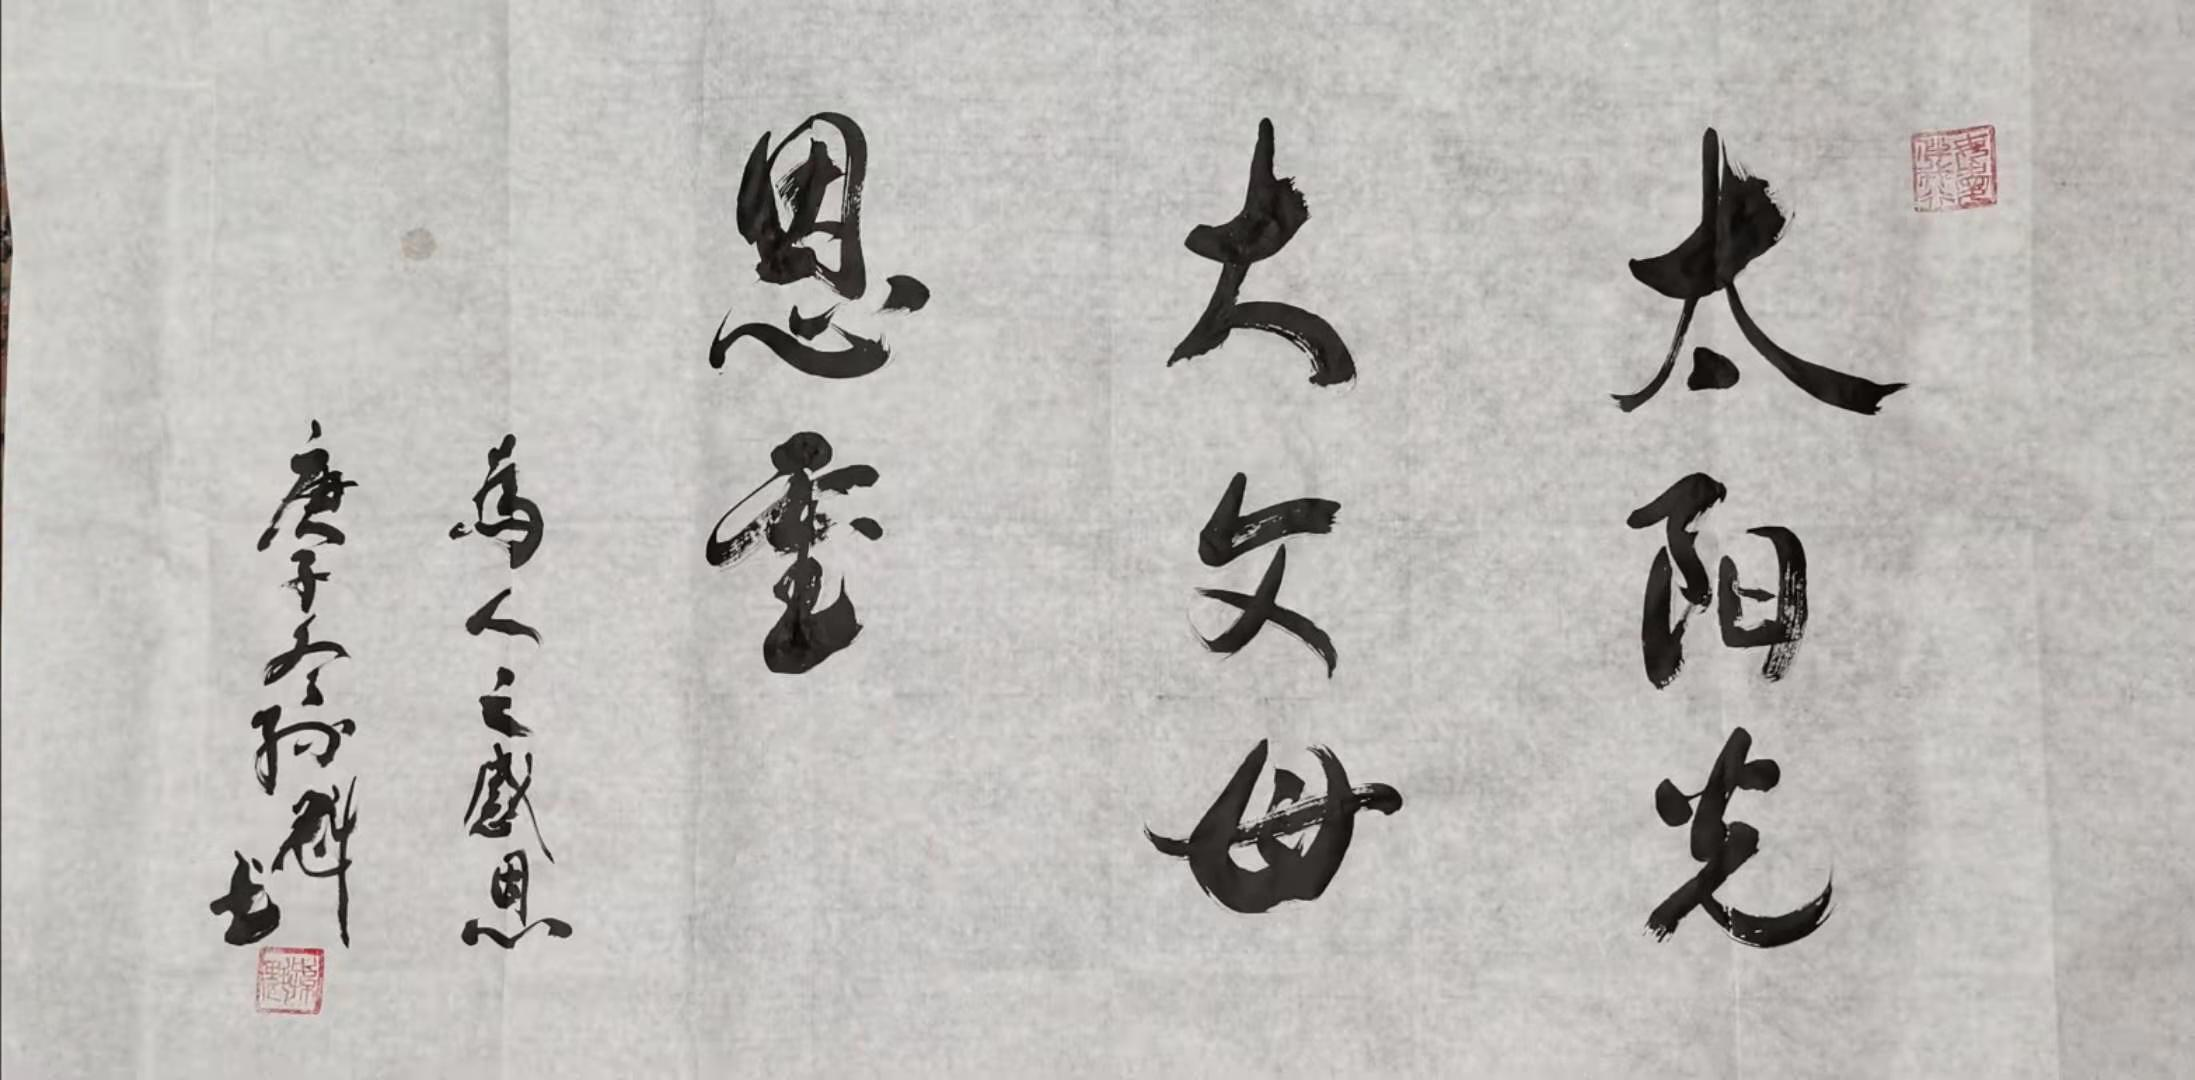 太阳光
大父母
恩重
為人之感恩
庚子冬孙魁书